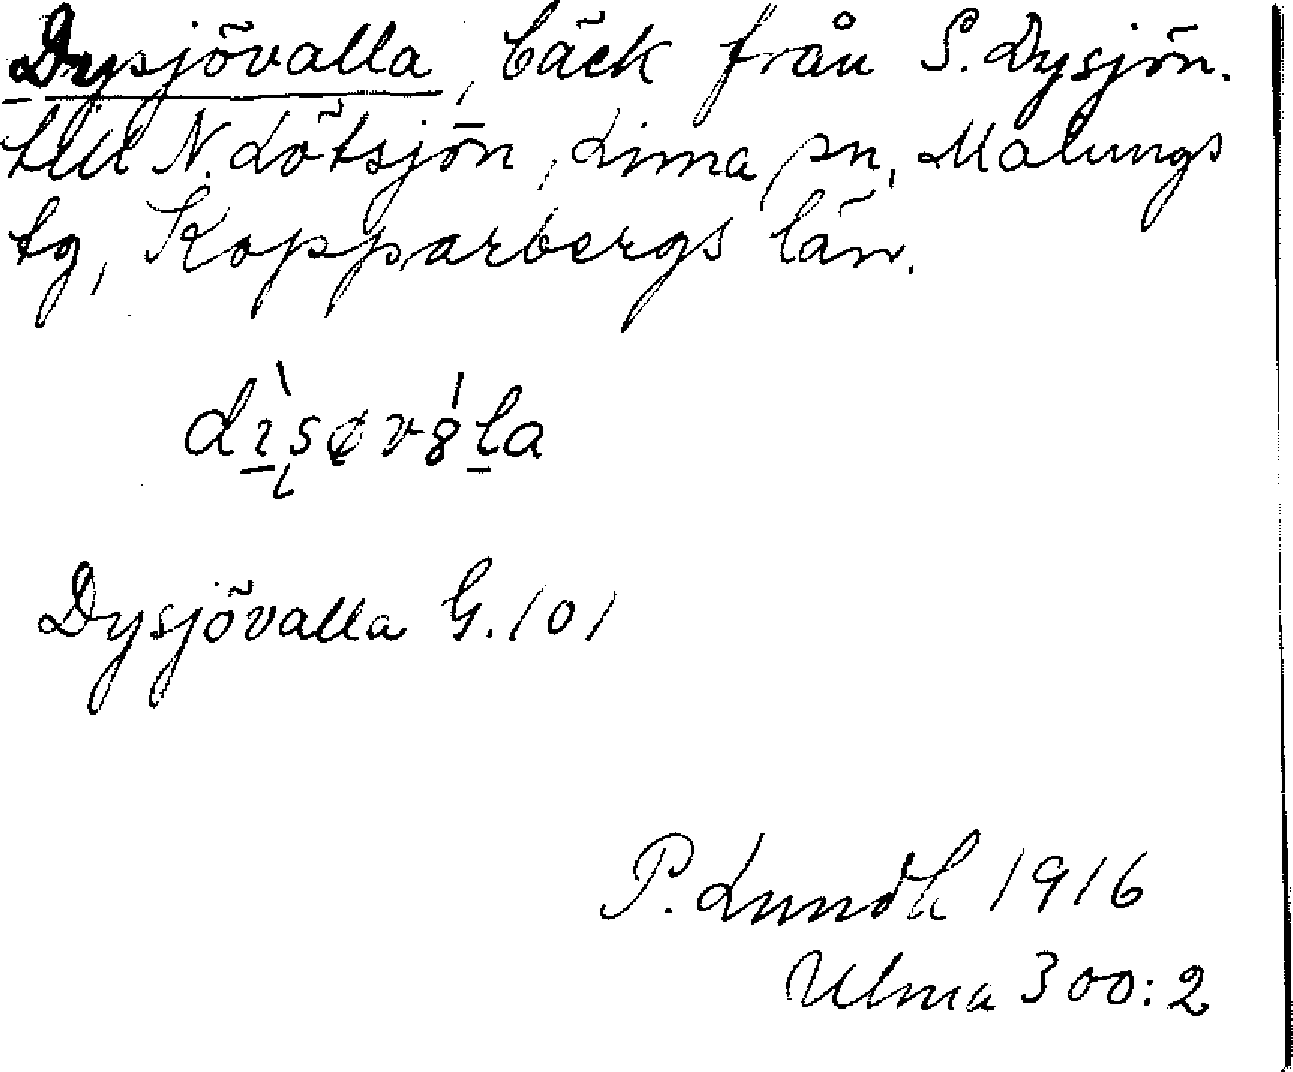 Dysjövalla, bäck från S. Dysjön.
till N. Lötsjön, Lima sn, Malungs
tg, Kopparbergs län.
Dysjövalla G. 101
P. Lundh 1916
Ulma 300:2